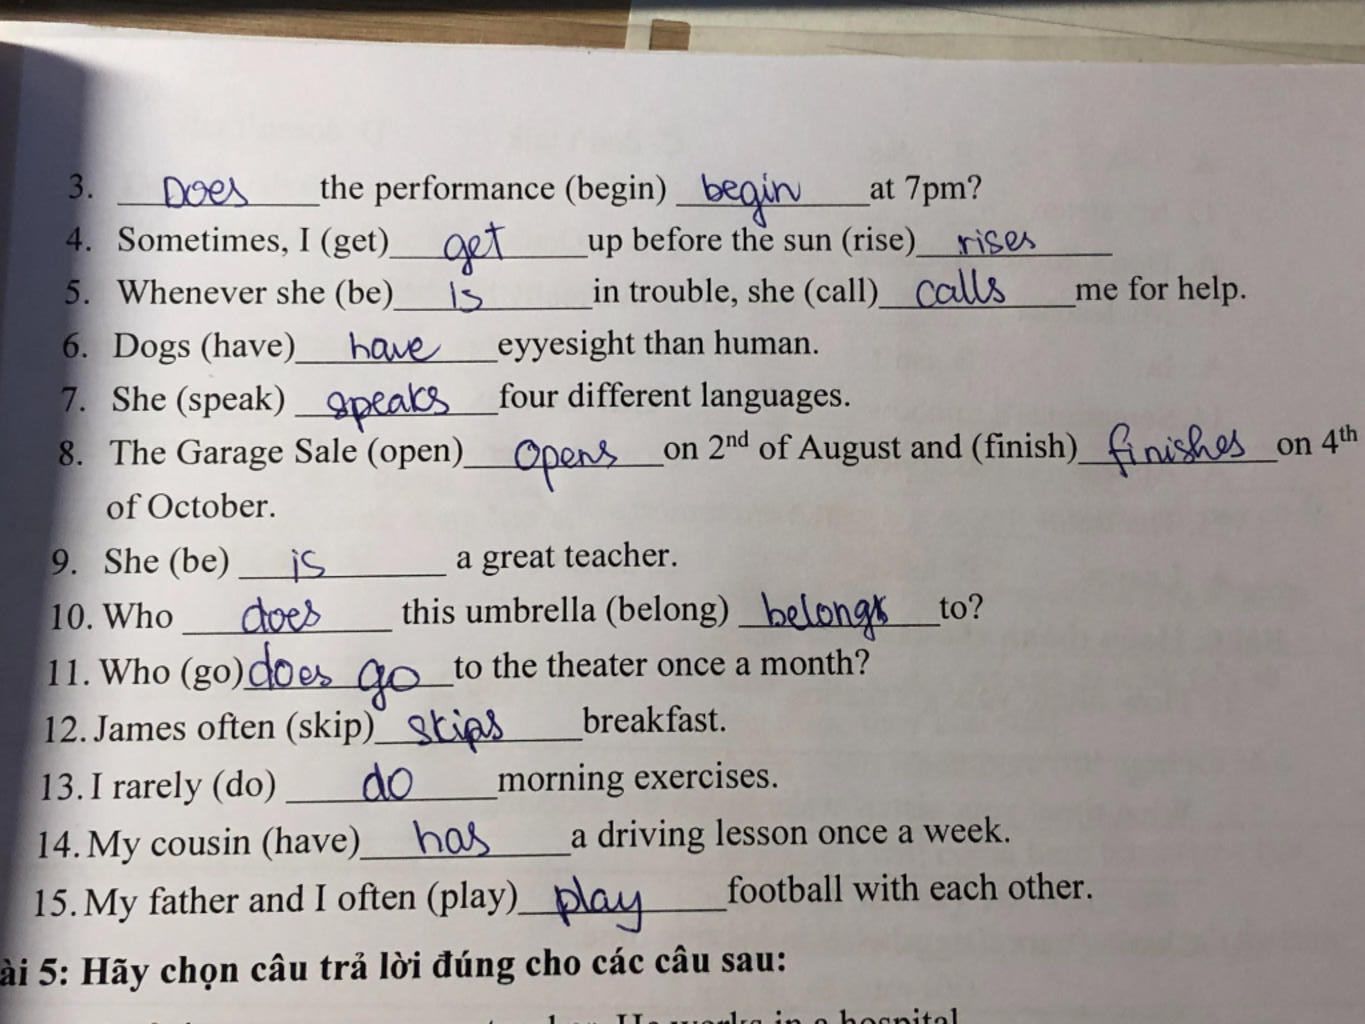 3. Does the performance (begin) begin at 7pm?
4. Sometimes, I (get) get up before the sun (rise) rises
5. Whenever she (be) is in trouble, she (call) calls me for help.
6. Dogs (have) have eyyesight than human.
7. She (speak) speaks four different languages.
8. The Garage Sale (open) opens on 2nd of August and (finish) finishes on 4th
of October.
9. She (be) is a great teacher.
10. Who does this umbrella (belong) belongs to?
11. Who (go) does go to the theater once a month?
12. James often (skip) skips breakfast.
13. I rarely (do) do morning exercises.
14. My cousin (have) has a driving lesson once a week.
15. My father and I often (play) play football with each other.
ài 5: Hãy chọn câu trả lời đúng cho các câu sau:
in a hospital